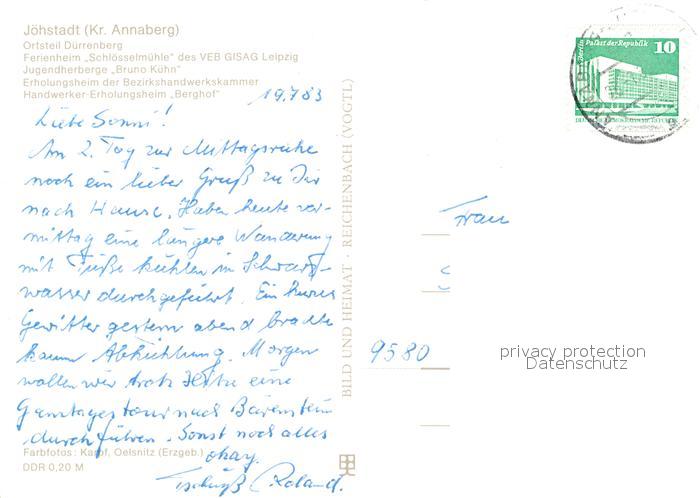 Jöhstadt (Kr. Annaberg)
Ortsteil Dürrenberg
Ferienheim „Schlösselmühle" des VEB GISAG Leipzig
Jugendherberge „Bruno Kühn"
Erholungsheim der Bezirkshandwerkskammer
Handwerker-Erholungsheim „Berghof"
19.7.83
Liebe Sonni!
Am 2. Tag zur Mittagsruhe
noch ein lieber Gruß zu Dir
nach Hause. Haben heute vor-
mittag eine längere Wanderung
mit Füße kühlen in Schwarz-
wasser durchgeführt. Ein kurzes
Gewitter gestern abend brachte
kaum Abkühlung. Morgen
wollen wir trotz Hitze eine
Ganztagestour nach Bärenstein
durchführen. Sonst noch alles
okay.
Tschüß Roland.
Farbfotos: Karpf, Oelsnitz (Erzgeb.)
DDR 0,20 M
BILD UND HEIMAT · REICHENBACH (VOGTL)
Berlin Palast der Republik 10
Frau
9580
privacy protection
Datenschutz